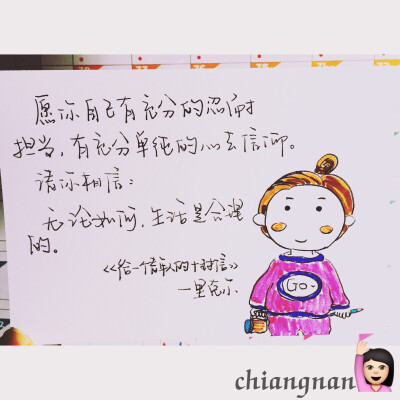 愿你自己有充分的忍耐
担当，有充分单纯的心去信仰。
请你相信：
无论如何，生活是合理
的。
《给一个青年人的十封信》
—里克尔
Go~
chiangnan